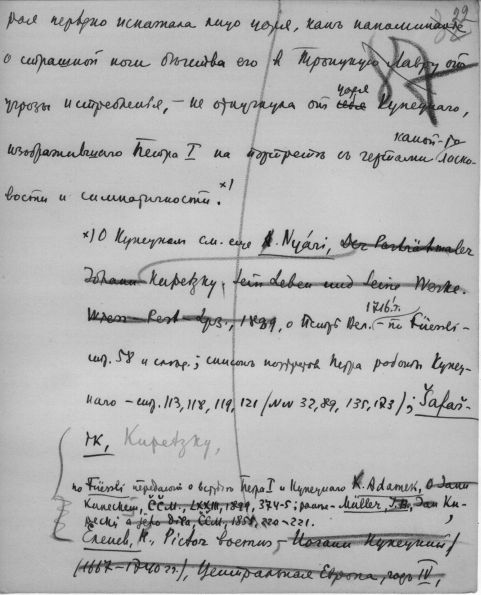 рая нерѣдко искажала лицо царя, какъ напоминанiе
о страшной ночи бѣгства его в Троицкую Лавру отъ
угрозы истребленья, – не отпугнула от царя Купецкаго,
изображавшаго Петра I на портретѣ съ чертами какой-то ласко-
вости и симпатичности.*)
*) О Купецкомъ см. еще A. Nyári, Der Porträtmaler
Johann Kupetzky, sein Leben und seine Werke.
Wien-Pest-Lpz., 1889, о Петрѣ Вел. 1716 г. – по Füessli –
стр. 58 и слѣд.; списокъ портретов Петра работы Купец-
каго – стр. 113, 118, 119, 121 (NN 32, 89, 135, 173); Šafař-
ík, Kupetzky,
по Füessli передаютъ о встрѣчѣ Петра I и Купецкаго K. Adámek, O Janu
Kupeckém, ČČM., LXXIII, 1899, 374-5; ранѣе – Müller J.B., Jan Ku-
pecký a jeho díla, ČČM, 1858, 220-221.
R., Pictor boemus – Иоганн Купецкий
(1667–1740 гг.), Центральная Европа, годъ IV,